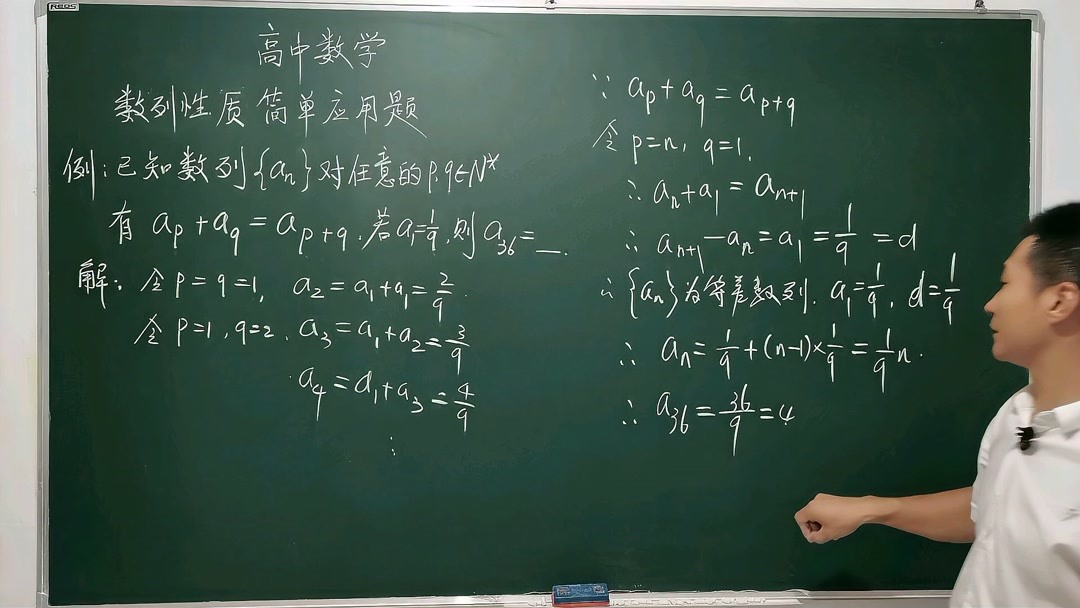 REDS
高中数学
数列性质简单应用题
例:已知数列{aₙ}对任意的p,q∈N*
有 aₚ+a_q=a_{p+q},若a₁=1/9,则a₃₆=__.
解:令p=q=1, a₂=a₁+a₁=2/9.
令p=1,q=2, a₃=a₁+a₂=3/9
a₄=a₁+a₃=4/9
⋮
∵ aₚ+a_q=a_{p+q}
令p=n, q=1,
∴ aₙ+a₁=aₙ₊₁
∴ aₙ₊₁-aₙ=a₁=1/9=d
∴{aₙ}为等差数列. a₁=1/9, d=1/9
∴ aₙ=1/9+(n-1)×1/9=1/9n.
∴ a₃₆=36/9=4